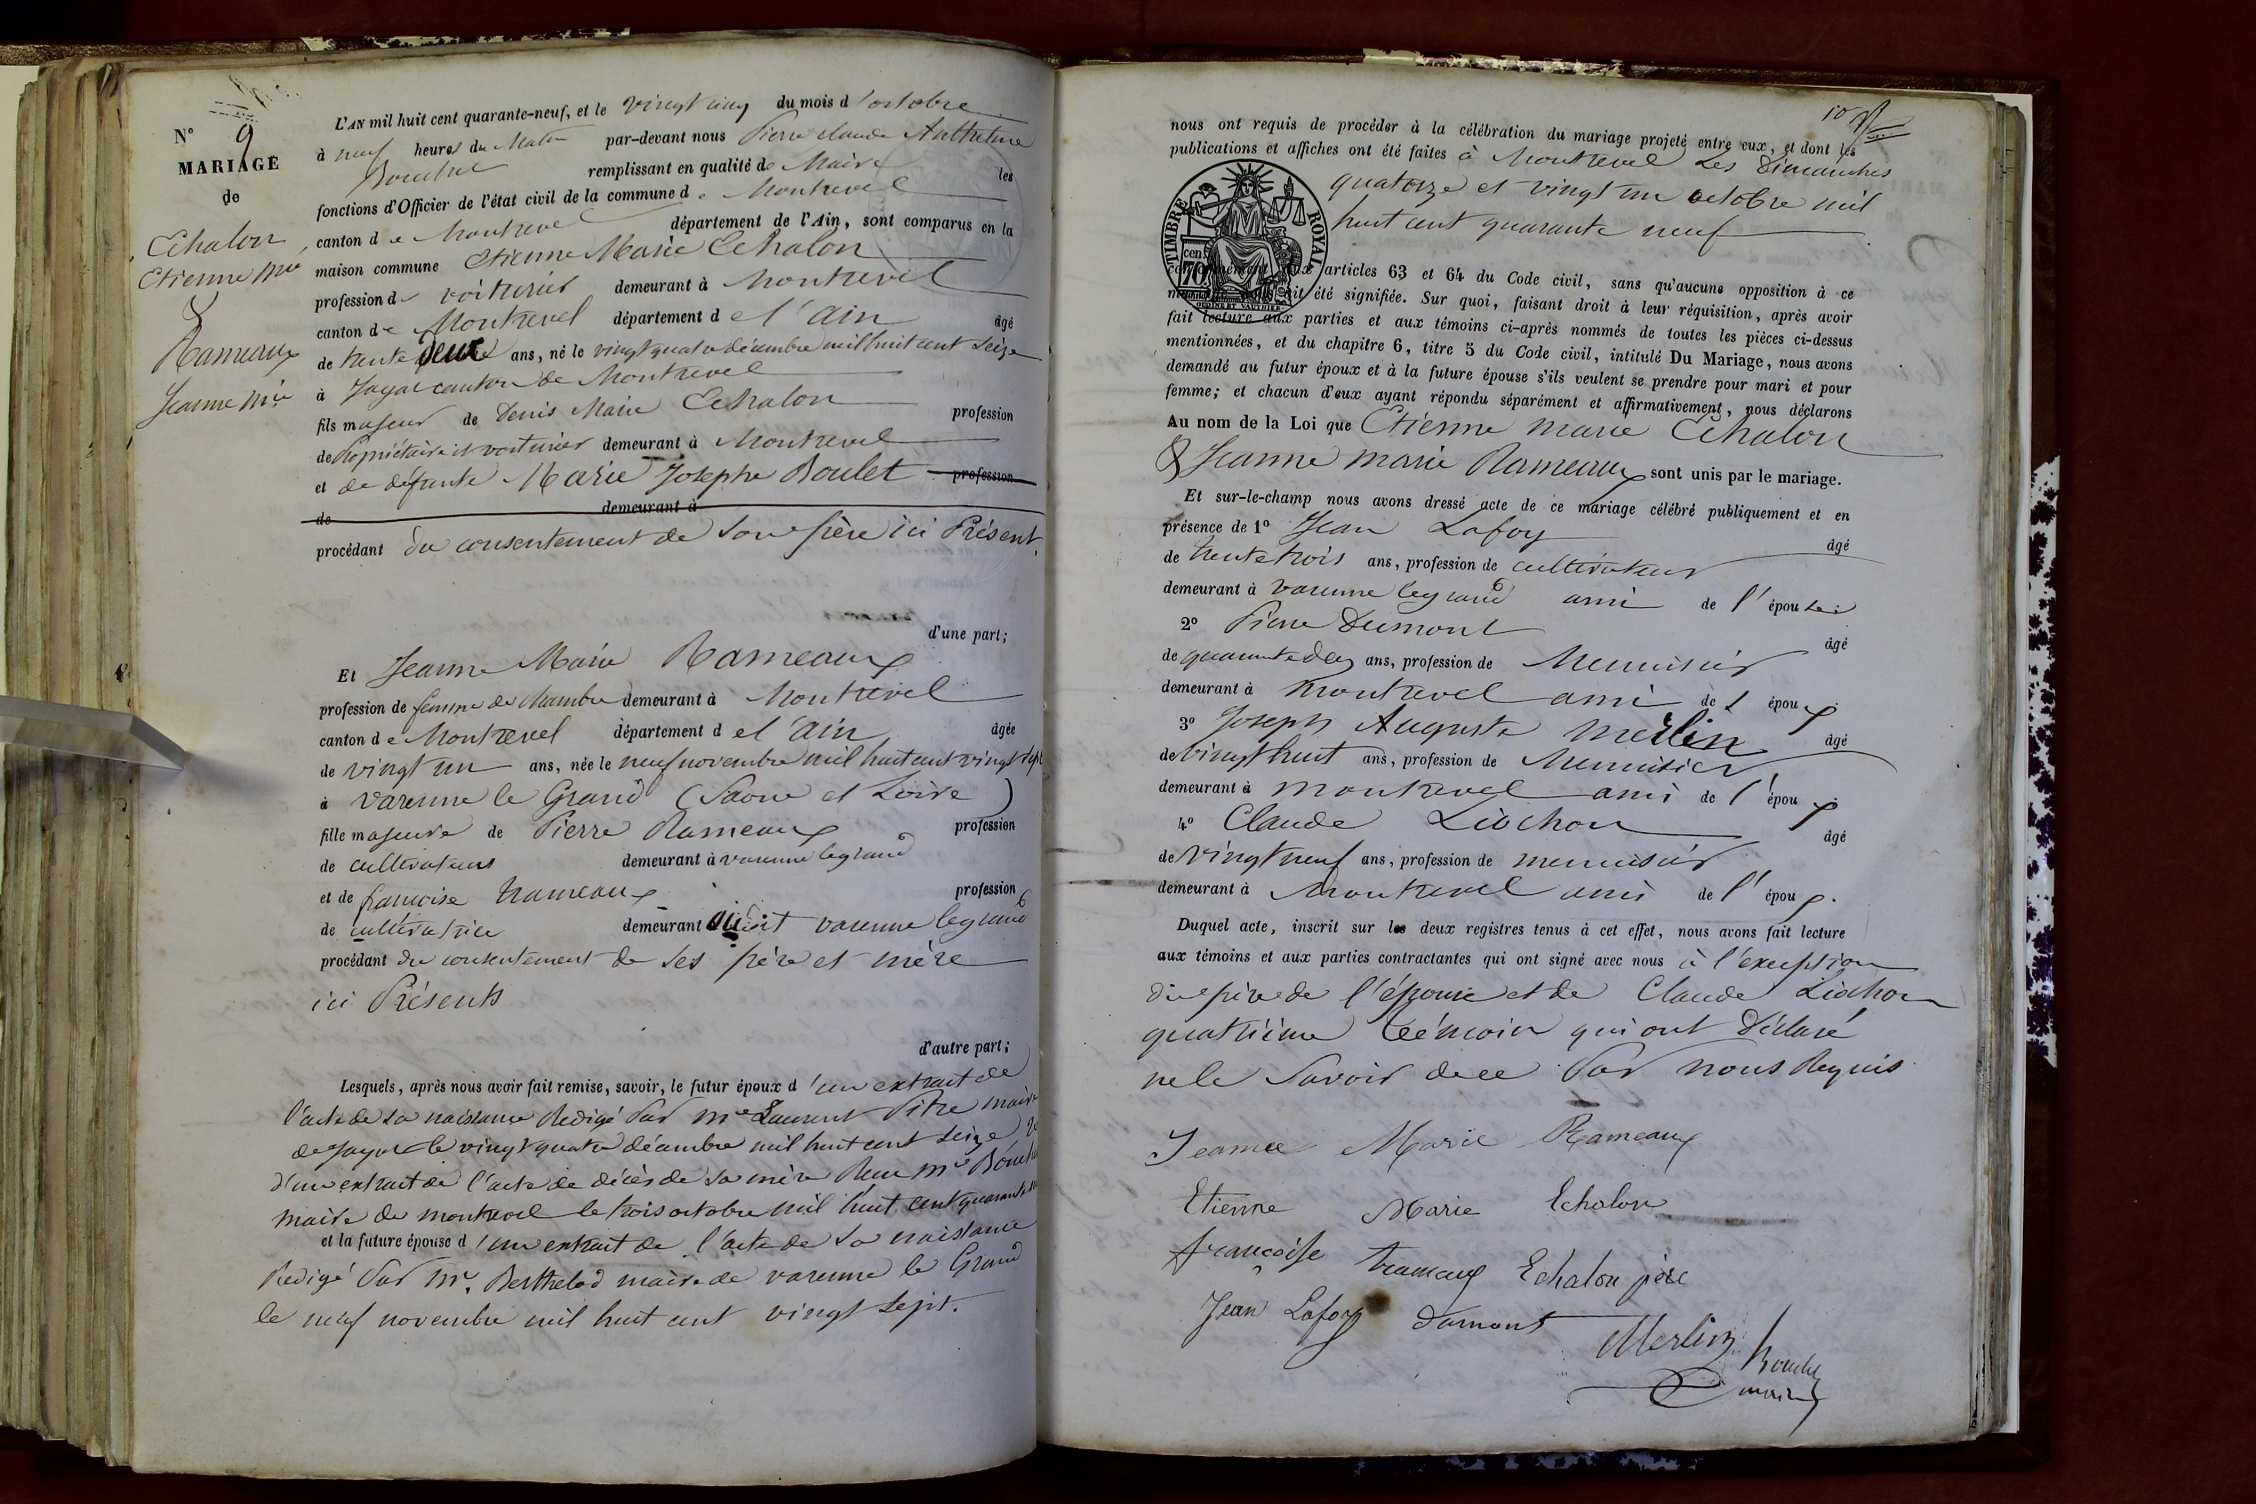 N° 9
MARIAGE
de
Echalon
Etienne Mie
&
Rameaux
Jeanne Mie
L'AN mil huit cent quarante-neuf, et le vingt cinq du mois d'octobre
à neuf heures du Matin par-devant nous Pierre Claude Anthelme
Bouchet remplissant en qualité de Maire les
fonctions d'Officier de l'état civil de la commune de Montrevel
canton de Montrevel département de l'Ain, sont comparus en la
maison commune Etienne Marie Echalon
profession de voiturier demeurant à Montrevel
canton de Montrevel département de l'Ain âgé
de trente deux ans, né le vingt quatre décembre mil huit cent seize
à Jayat canton de Montrevel
fils majeur de Denis Marie Echalon profession
de Propriétaire et voiturier demeurant à Montrevel
et de défunte Marie Josephe Boulet profession
de demeurant à
procédant du consentement de son père ici Présent,
d'une part;
Et Jeanne Marie Rameaux
profession de femme de chambre demeurant à Montrevel
canton de Montrevel département de l'Ain âgée
de vingt un ans, née le neuf novembre mil huit cent vingt sept
à Varenne le Grand (Saone et Loire)
fille majeure de Pierre Rameaux profession
de cultivateur demeurant à varenne legrand
et de françoise trameaux profession
de cultivatrice demeurant audit varenne legrand
procédant du consentement de ses père et mère
ici Présents
d'autre part;
Lesquels, après nous avoir fait remise, savoir, le futur époux d'un extrait de
l'acte de sa naissance Redigé Par Mr Laurent Pitre maire
de Jayat le vingt quatre décembre mil huit cent seize
d'un extrait de l'acte de décès de sa mère Reçu Mr Bouchet
maire de montrevel le trois octobre mil huit cent quarante
et la future épouse d'un extrait de l'acte de sa naissance
Redigé Par Mr. Berthelod maire de varenne le Grand
le neuf novembre mil huit cent vingt sept.
10
nous ont requis de procéder à la célébration du mariage projeté entre eux, et dont les
publications et affiches ont été faites à Montrevel Les Dimanches
quatorze et vingt un octobre mil
huit cent quarante neuf
TIMBRE ROYAL
70 cen
OUDINE ET VAUTHIER
conformément aux articles 63 et 64 du Code civil, sans qu'aucune opposition à ce
mariage nous ait été signifiée. Sur quoi, faisant droit à leur réquisition, après avoir
fait lecture aux parties et aux témoins ci-après nommés de toutes les pièces ci-dessus
mentionnées, et du chapitre 6, titre 5 du Code civil, intitulé Du Mariage, nous avons
demandé au futur époux et à la future épouse s'ils veulent se prendre pour mari et pour
femme; et chacun d'eux ayant répondu séparément et affirmativement, nous déclarons
Au nom de la Loi que Etienne Marie Echalon
& Jeanne Marie Rameaux sont unis par le mariage.
Et sur-le-champ nous avons dressé acte de ce mariage célébré publiquement et en
présence de 1° Jean Lafoy âgé
de trente trois ans, profession de cultivateur
demeurant à varenne legrand ami de l'épouse
2° Pierre Dumont âgé
de quarante deux ans, profession de Menuisier
demeurant à Montrevel ami de l'époux
3° Joseph Auguste Merlin âgé
de vingt huit ans, profession de Menuisier
demeurant à Montrevel ami de l'époux
4° Claude Liochon âgé
de vingt neuf ans, profession de menuisier
demeurant à Montrevel ami de l'époux.
Duquel acte, inscrit sur les deux registres tenus à cet effet, nous avons fait lecture
aux témoins et aux parties contractantes qui ont signé avec nous à l'exception
du père de l'épouse et de Claude Liochon
quatrième témoin qui ont Déclaré
ne le Savoir de ce Par nous Requis
Jeanne Marie Rameaux
Etienne Marie Echalon
françoise trameaux Echalon père
Jean Lafoy dumont
Merlin Bouchet
maire